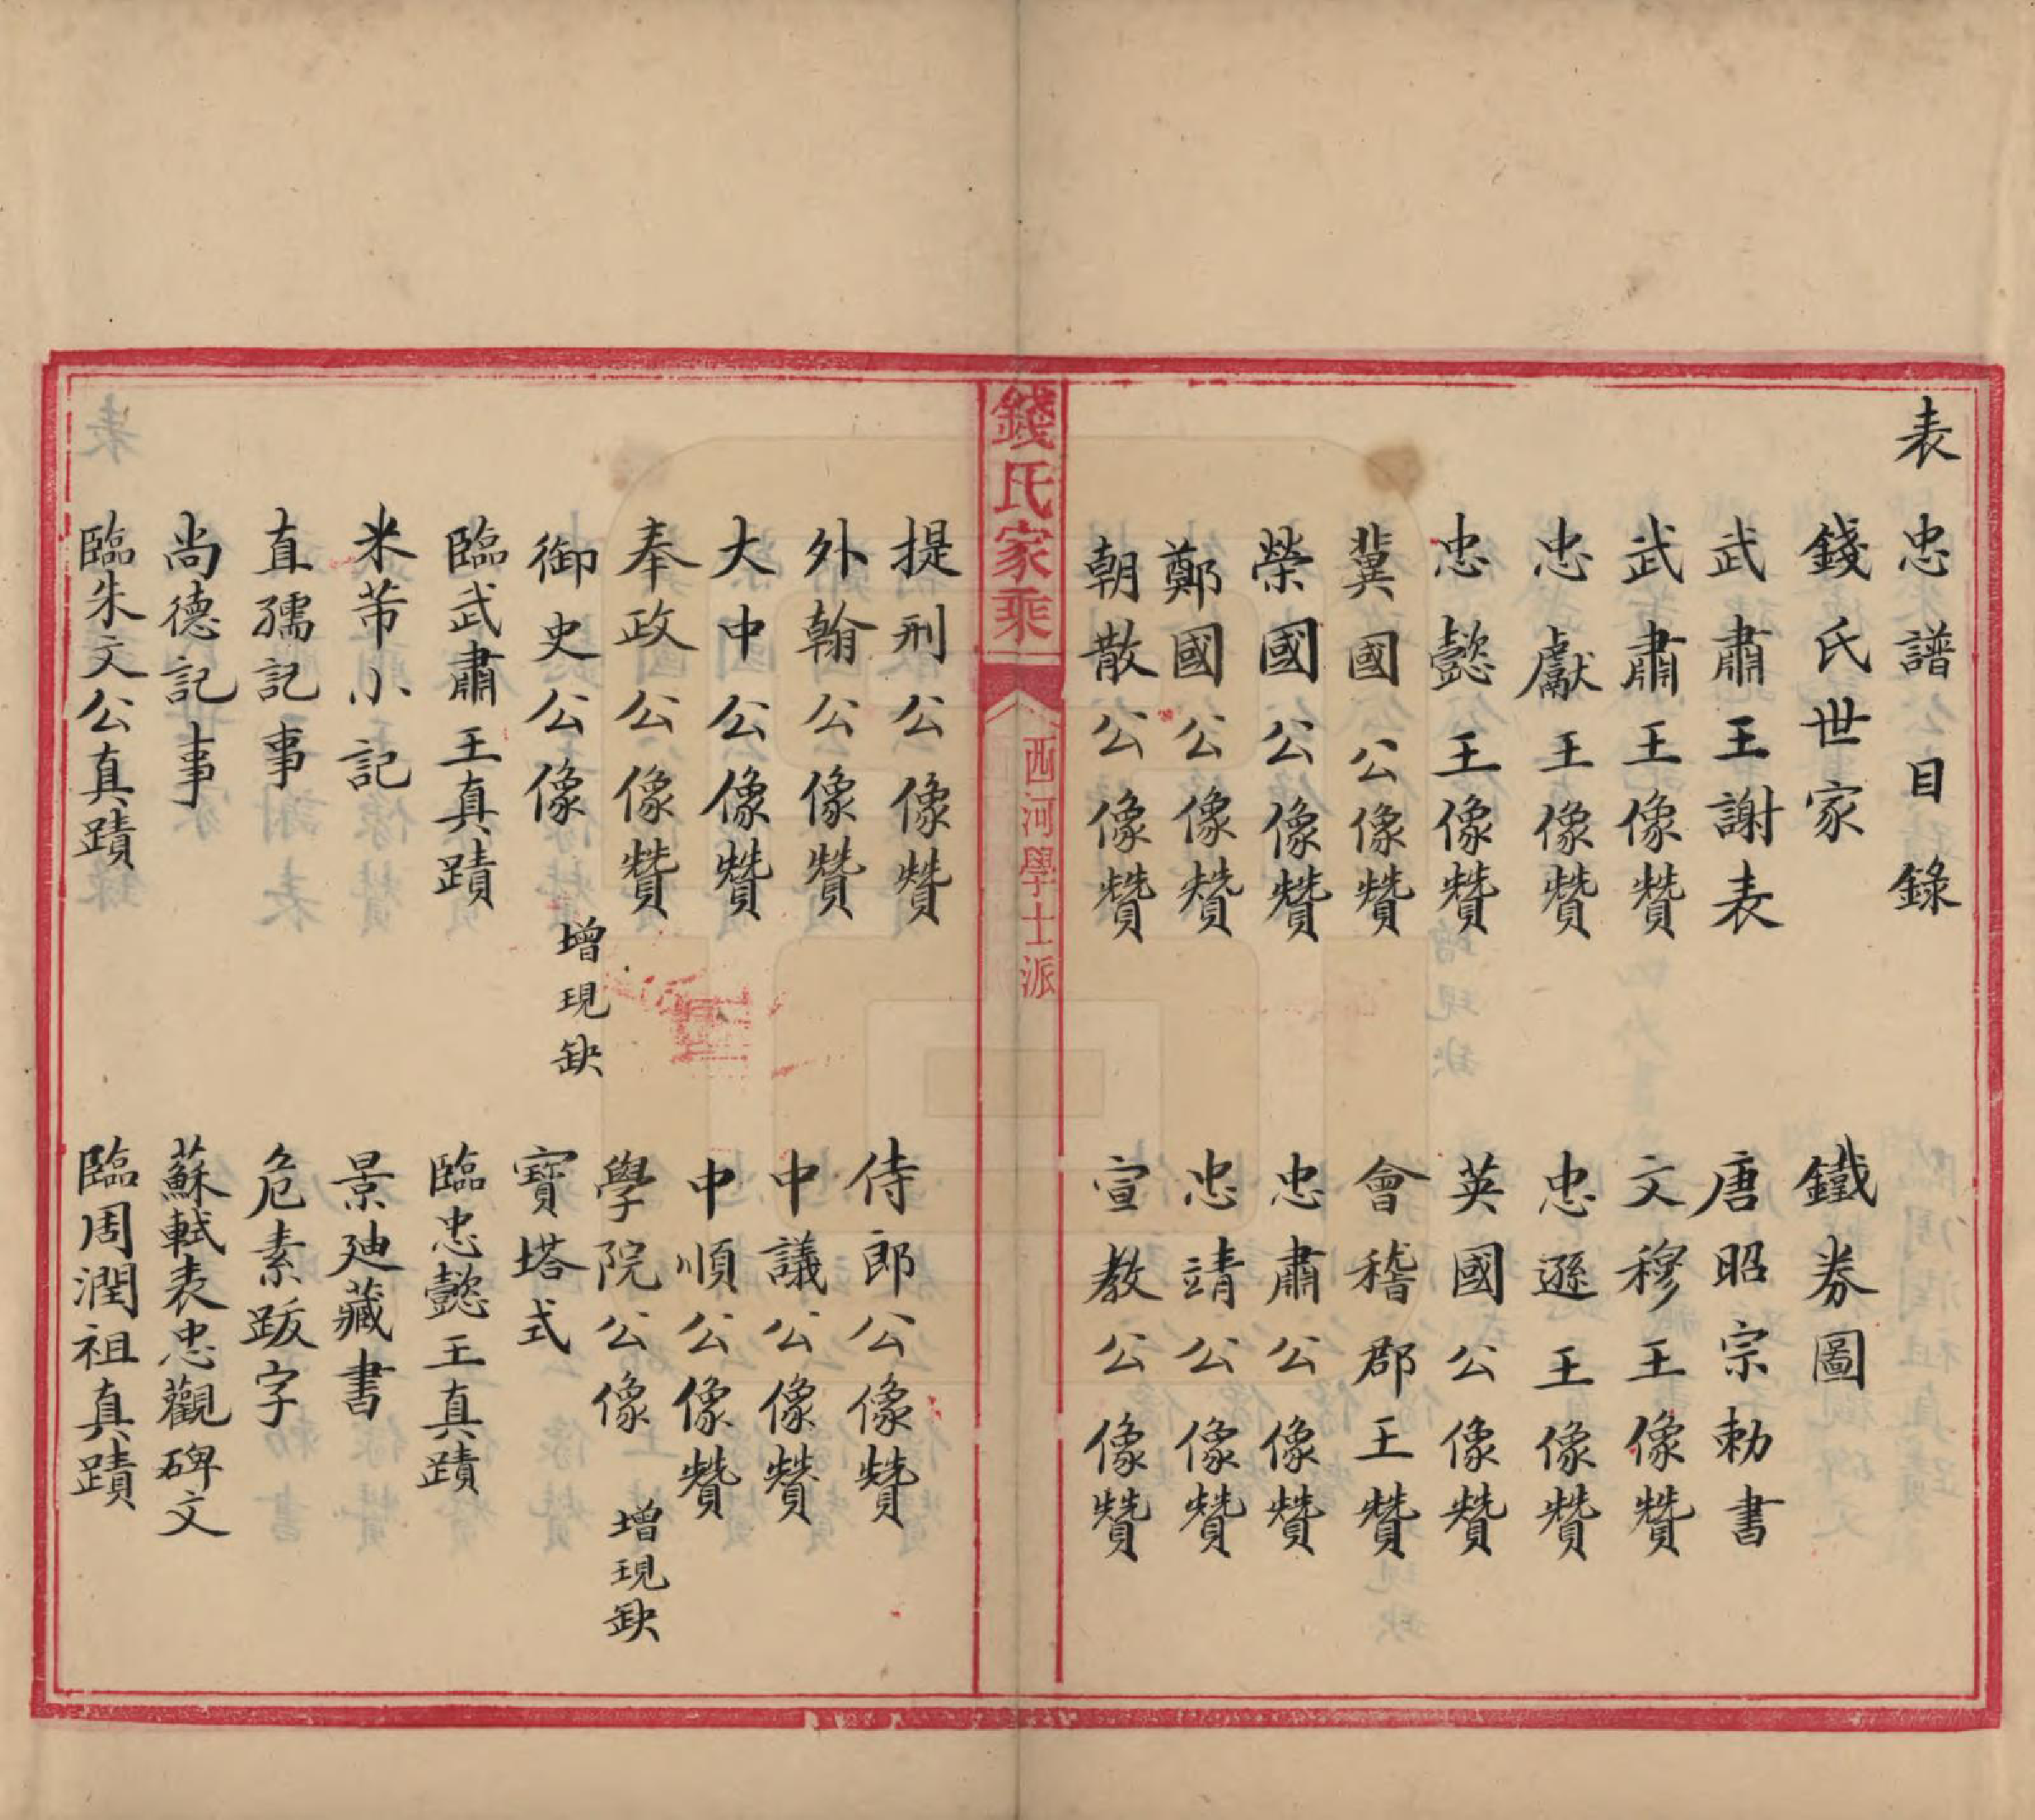 表忠譜目錄
錢氏世家 鐵券圖
武肅王謝表 唐昭宗勅書
武肅王像贊 文穆王像贊
忠獻王像贊 忠遜王像贊
忠懿王像贊 英國公像贊
冀國公像贊 會稽郡王贊
榮國公像贊 忠肅公像贊
鄭國公像贊 忠靖公像贊
朝散公像贊 宣教公像贊
錢氏家乘 西河學士派
提刑公像贊 侍郎公像贊
外翰公像贊 中議公像贊
大中公像贊 中順公像贊
奉政公像贊 學院公像 增現缺
御史公像 增現缺 寶塔式
臨武肅王真蹟 臨忠懿王真蹟
米芾小記 景迪藏書
直孺記事 危素跋字
尚德記事 蘇軾表忠觀碑文
臨朱文公真蹟 臨周潤祖真蹟